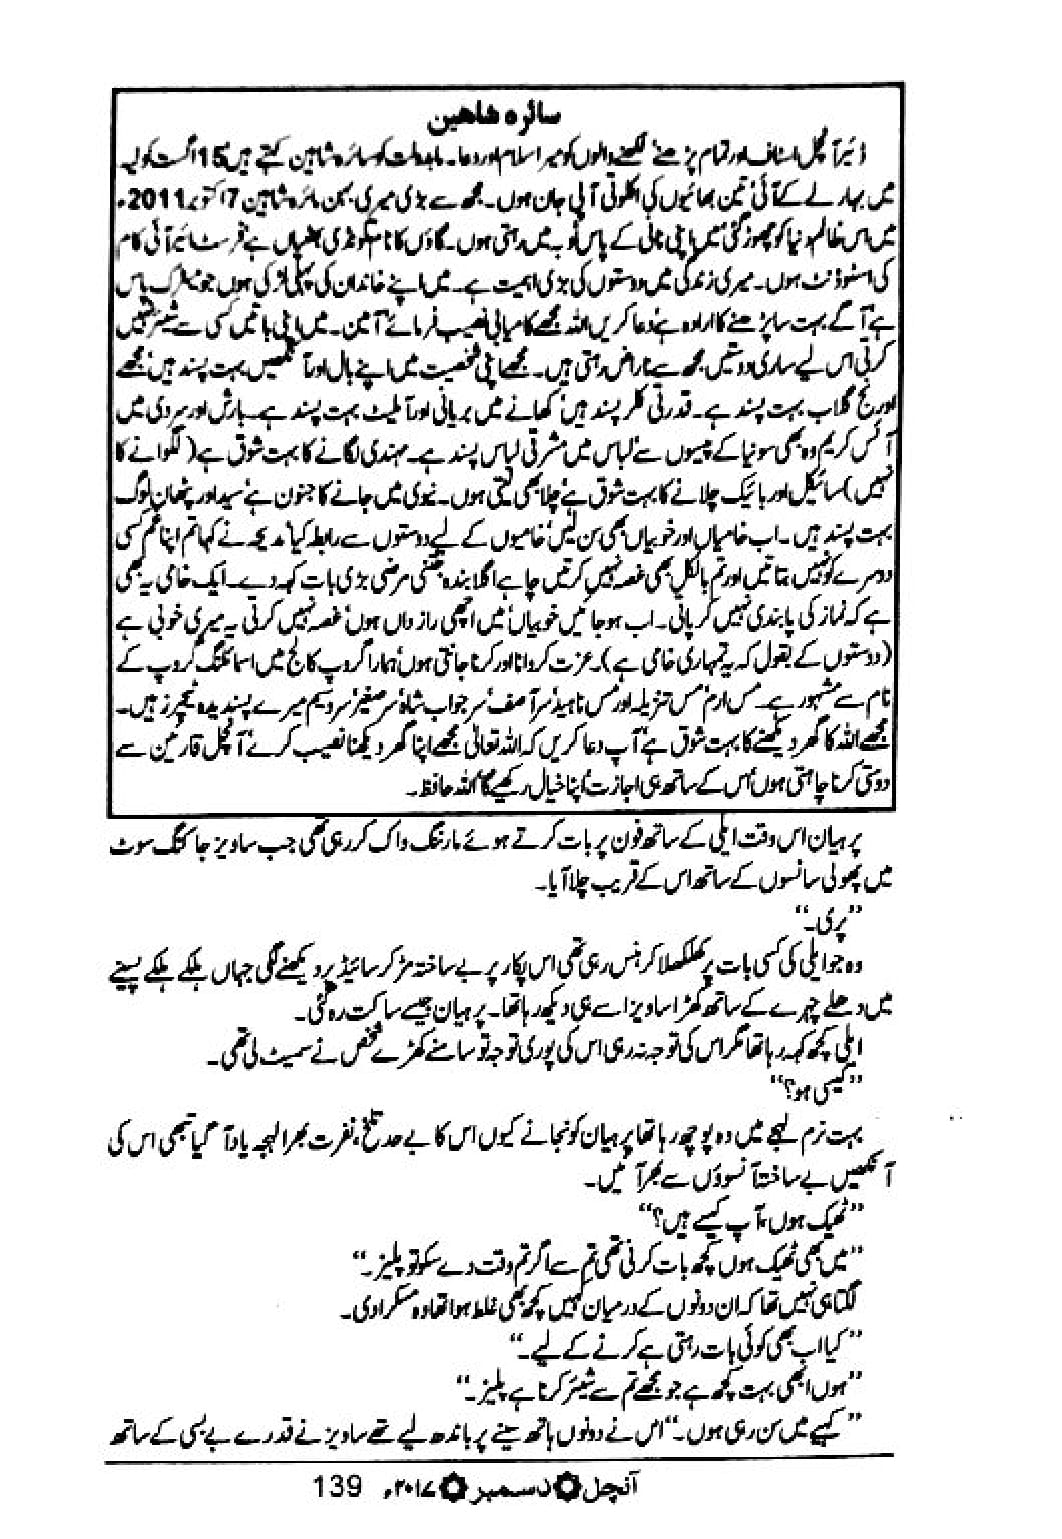 سائرہ شاھین
ڈیئر آنچل اسٹاف اور تمام پڑھنے لکھنے والوں کو میرا سلام اور دعا۔ مابدولت کو سائرہ شاہین کہتے ہیں' 15 اگست کو لیہ
میں بہار لے کے آئی' تین بھائیوں کی اکلوتی آپی جان ہوں۔ مجھ سے بڑی میری بہن مائرہ شاہین 7 اکتوبر 2011ء
میں اس ظالم دنیا کو چھوڑ گئی' میں اپنی نانی کے پاس ٹوبہ میں رہتی ہوں۔ گاؤں کا نام کونڈی ہے' فرسٹ ائیر آئی کام
کی اسٹوڈنٹ ہوں۔ میری زندگی میں دوستوں کی بڑی اہمیت ہے۔ میں اپنے خاندان کی پہلی لڑکی ہوں جو میٹرک پاس
ہے آگے بہت سا پڑھنے کا ارادہ ہے' دعا کریں اللہ مجھے کامیابی نصیب فرمائے' آمین۔ میں اپنی باتیں کسی سے شیئر نہیں
کرتی اس لیے ساری دوستیں مجھ سے ناراض رہتی ہیں۔ مجھے اپنی شخصیت میں اپنے بال اور آنکھیں بہت پسند ہیں' مجھے
اورنج گلاب بہت پسند ہے۔ قدرتی کلر پسند ہیں' کھانے میں بریانی اور آملیٹ بہت پسند ہے۔ بارش اور سردی میں
آئس کریم وہ بھی سونیا کے پیسوں سے' لباس میں مشرقی لباس پسند ہے۔ مہندی لگانے کا بہت شوق ہے (لگوانے کا
نہیں) سائیکل اور بائیک چلانے کا بہت شوق ہے' چلا بھی لیتی ہوں۔ نیوی میں جانے کا جنون ہے' سید اور پٹھان لوگ
بہت پسند ہیں۔ اب خامیاں اور خوبیاں بھی سن لیں' خامیوں کے لیے دوستوں سے رابطہ کیا' مدیحہ نے کہا تم اپنا غم کسی
دوسرے کو نہیں بتاتیں اور تم بالکل بھی غصہ نہیں کرتیں چاہے اگلا بندہ جتنی مرضی بڑی بات کہہ دے۔ ایک خامی یہ بھی
ہے کہ نماز کی پابندی نہیں کر پاتی۔ اب ہو جائیں خوبیاں' میں اچھی رازداں ہوں' غصہ نہیں کرتی یہ میری خوبی ہے
(دوستوں کے بقول کہ یہ تمہاری خامی ہے)۔ عزت کروانا اور کرنا جانتی ہوں' ہمارا گروپ کالج میں اسمائلنگ گروپ کے
نام سے مشہور ہے۔ مس ارم' مس تنزیلہ اور مس ناہید' سر آصف' سر جواب شاہ' سر صغیر' سر وسیم میرے پسندیدہ ٹیچرز ہیں۔
مجھے اللہ کا گھر دیکھنے کا بہت شوق ہے' آپ دعا کریں کہ اللہ تعالیٰ مجھے اپنا گھر دیکھنا نصیب کرے' آنچل قارئین سے
دوستی کرنا چاہتی ہوں' اس کے ساتھ ہی اجازت' اپنا خیال رکھیے گا' اللہ حافظ۔
پرہیان اس وقت ایلی کے ساتھ فون پر بات کرتے ہوئے مارننگ واک کر رہی تھی جب ساویز جاگنگ سوٹ
میں پھولی سانسوں کے ساتھ اس کے قریب چلا آیا۔
”پری۔“
وہ جو ایلی کی کسی بات پر کھلکھلا کر ہنس رہی تھی اس پکار پر بے ساختہ مڑ کر سائیڈ پر دیکھنے لگی جہاں ہلکے ہلکے پسینے
میں دھلے چہرے کے ساتھ کھڑا ساویز اسے ہی دیکھ رہا تھا۔ پرہیان جیسے ساکت رہ گئی۔
ایلی کچھ کہہ رہا تھا مگر اس کی توجہ نہ رہی اس کی پوری توجہ تو سامنے کھڑے شخص نے سمیٹ لی تھی۔
”کیسی ہو؟“
بہت نرم لہجے میں وہ پوچھ رہا تھا پرہیان کو نجانے کیوں اس کا بے حد تلخ، نفرت بھرا لہجہ یاد آ گیا تبھی اس کی
آنکھیں بے ساختہ آنسوؤں سے بھر آئیں۔
”ٹھیک ہوں، آپ کیسے ہیں؟“
”میں بھی ٹھیک ہوں کچھ بات کرنی تھی تم سے اگر تم وقت دے سکو تو پلیز۔“
لگتا ہی نہیں تھا کہ ان دونوں کے درمیان کہیں کچھ بھی غلط ہوا تھا وہ مسکرا دی۔
”کیا اب بھی کوئی بات رہتی ہے کرنے کے لیے۔“
”ہوں ابھی بہت کچھ ہے جو مجھے تم سے شیئر کرنا ہے پلیز۔“
”کہیے میں سن رہی ہوں۔“ اس نے دونوں ہاتھ سینے پر باندھ لیے تھے ساویز نے قدرے بے بسی کے ساتھ
آنچل دسمبر ۲۰۱۷ء 139